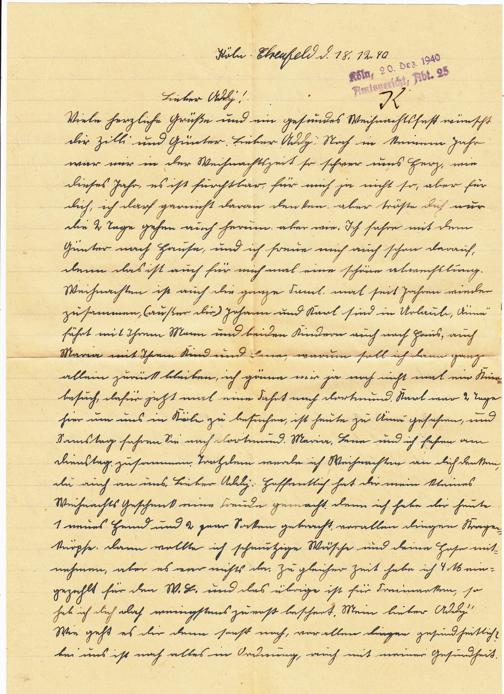 Köln-Ehrenfeld d. 18.12.40
Köln, 20. Dez. 1940
Amtsgericht, Abt. 25
K
Lieber Addy!
Viele herzliche Grüße und ein gesundes Weihnachtsfest wünscht
dir Zilli und Günter. Lieber Addy! Noch in keinem Jahr
war mir in der Weihnachtszeit so schwer ums Herz, wie
dieses Jahr, es ist furchtbar, für mich ja nicht so, aber für
dich, ich darf garnicht daran denken. aber tröste dich nur
die 2 Tage gehen auch herum aber wie. Ich fahre mit dem
Günter nach Hause, und ich freue mich auch schon darauf,
denn das ist auch für mich mal eine schöne abwechslung.
Weihnachten ist auch die ganze Faml. mal seit Jahren wieder
zusammen, (außer die) Johann und Karl sind in Urlaub, Änni
fährt mit Ihrem Mann und beiden Kindern auch nach Haus, auch
Maria mit Ihren Kind und Lene, warum soll ich dann ganz
allein zurück bleiben, ich gönne mir ja noch nicht mal ein Kino
besuch, dafür jetzt mal eine Fahrt nach Dortmund. Karl war 2 Tage
hier um uns in Köln zu besuchen, ist heute zu Änni gefahren, und
Samstag fahren Sie nach Dortmund. Maria, Lene und ich fahren am
Dienstag zusammen. Trotzdem werde ich Weihnachten an dich denken,
du auch an uns lieber Addy. Hoffentlich hat dir mein kleines
Weihnachts Geschenk eine Freude gemacht denn ich habe dir heute
1 neues Hemd und 2 paar Socken gebracht, vorallen dingen Kragen-
knöpfe. dann wollte ich schmutzige Wäsche und deine Hose mit-
nehmen, aber es war nichts da. Zu gleicher Zeit habe ich 4 M ein-
gezahlt für den W.B. und das übrige ist für Freimarken, so
hab ich dich doch wenigstens zuerst beschert. Mein lieber Addy!
Wie geht es dir denn sonst noch, vor allen dingen gesundheitlich?
bei uns ist noch alles in Ordnung, auch mit meiner Gesundheit.